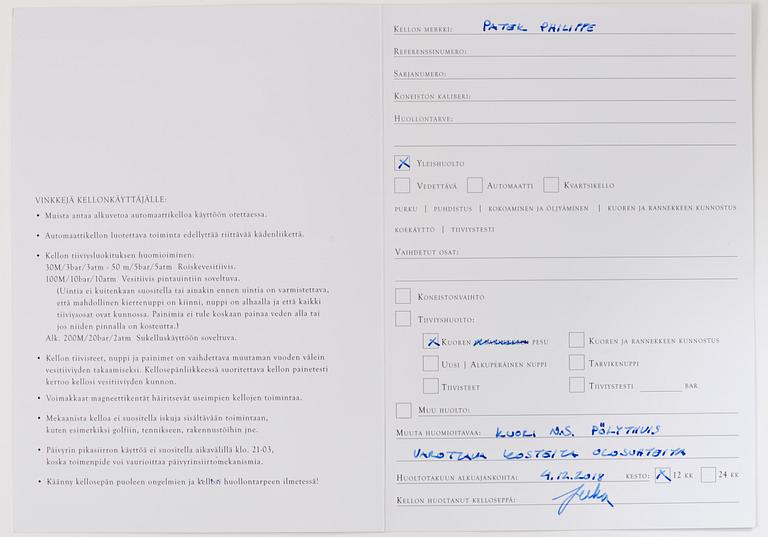 VINKKEJÄ KELLONKÄYTTÄJÄLLE:
• Muista antaa alkuvetoa automaattikelloa käyttöön otettaessa.
• Automaattikellon luotettava toiminta edellyttää riittävää kädenliikettä.
• Kellon tiiviysluokituksen huomioiminen:
30M/3bar/3atm - 50 m/5bar/5atm Roiskevesitiivis.
100M/10bar/10atm Vesitiivis pintauintiin soveltuva.
(Uintia ei kuitenkaan suositella tai ainakin ennen uintia on varmistettava,
että mahdollinen kierrenuppi on kiinni, nuppi on alhaalla ja että kaikki
tiiviysosat ovat kunnossa. Painimia ei tule koskaan painaa veden alla tai
jos niiden pinnalla on kosteutta.)
Alk. 200M/20bar/2atm Sukelluskäyttöön soveltuva.
• Kellon tiivisteet, nuppi ja painimet on vaihdettava muutaman vuoden välein
vesitiiviyden takaamiseksi. Kellosepänliikkeessä suoritettava kellon painetesti
kertoo kellosi vesitiiviyden kunnon.
• Voimakkaat magneettikentät häiritsevät useimpien kellojen toimintaa.
• Mekaanista kelloa ei suositella iskuja sisältävään toimintaan,
kuten esimerkiksi golfiin, tennikseen, rakennustöihin jne.
• Päivyrin pikasiirron käyttöä ei suositella aikavälillä klo. 21-03,
koska toimenpide voi vaurioittaa päivyrinsiirtomekanismia.
• Käänny kellosepän puoleen ongelmien ja kellosi huollontarpeen ilmetessä!
KELLON MERKKI: PATEK PHILIPPE
REFERENSSINUMERO:
SARJANUMERO:
KONEISTON KALIBERI:
HUOLLONTARVE:
X YLEISHUOLTO
VEDETTÄVÄ AUTOMAATTI KVARTSIKELLO
PURKU | PUHDISTUS | KOKOAMINEN JA ÖLJYÄMINEN | KUOREN JA RANNEKKEEN KUNNOSTUS
KOEKÄYTTÖ | TIIVISTESTI
VAIHDETUT OSAT:
KONEISTONVAIHTO
TIIVIYSHUOLTO:
X KUOREN PESU KUOREN JA RANNEKKEEN KUNNOSTUS
UUSI | ALKUPERÄINEN NUPPI TARVIKENUPPI
TIIVISTEET TIIVIYSTESTI BAR
MUU HUOLTO:
MUUTA HUOMIOITAVAA: KUORI N.S. PÖLYTIIVIS
VAROTTAVA KOSTEITA OLOSUHTEITA
HUOLTOTAKUUN ALKUAJANKOHTA: 4.12.2018 KESTO: X 12 KK 24 KK
KELLON HUOLTANUT KELLOSEPPÄ: